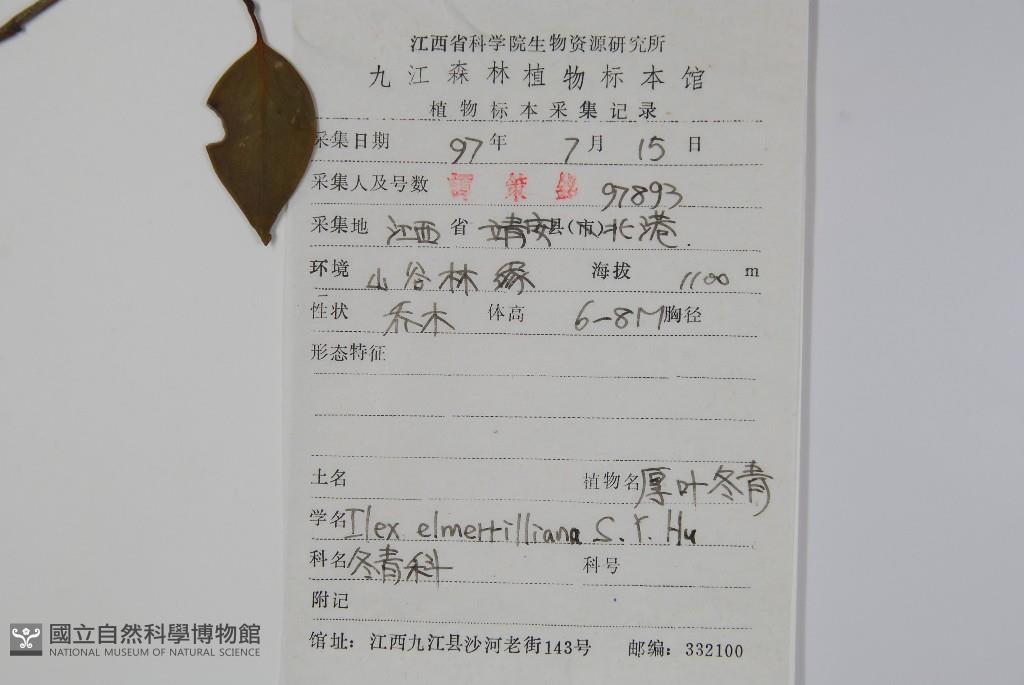 江西省科学院生物资源研究所
九江森林植物标本馆
植物标本采集记录
采集日期 97年 7月 15日
采集人及号数 谭策铭 97893
采集地 江西 省 靖安县(市)北港.
环境 山谷林缘 海拔 1100 m
性状 乔木 体高 6-8M 胸径
形态特征
土名 植物名 厚叶冬青
学名 Ilex elmerrilliana S.Y. Hu
科名 冬青科 科号
附记
馆址：江西九江县沙河老街143号 邮编：332100
國立自然科學博物館
NATIONAL MUSEUM OF NATURAL SCIENCE